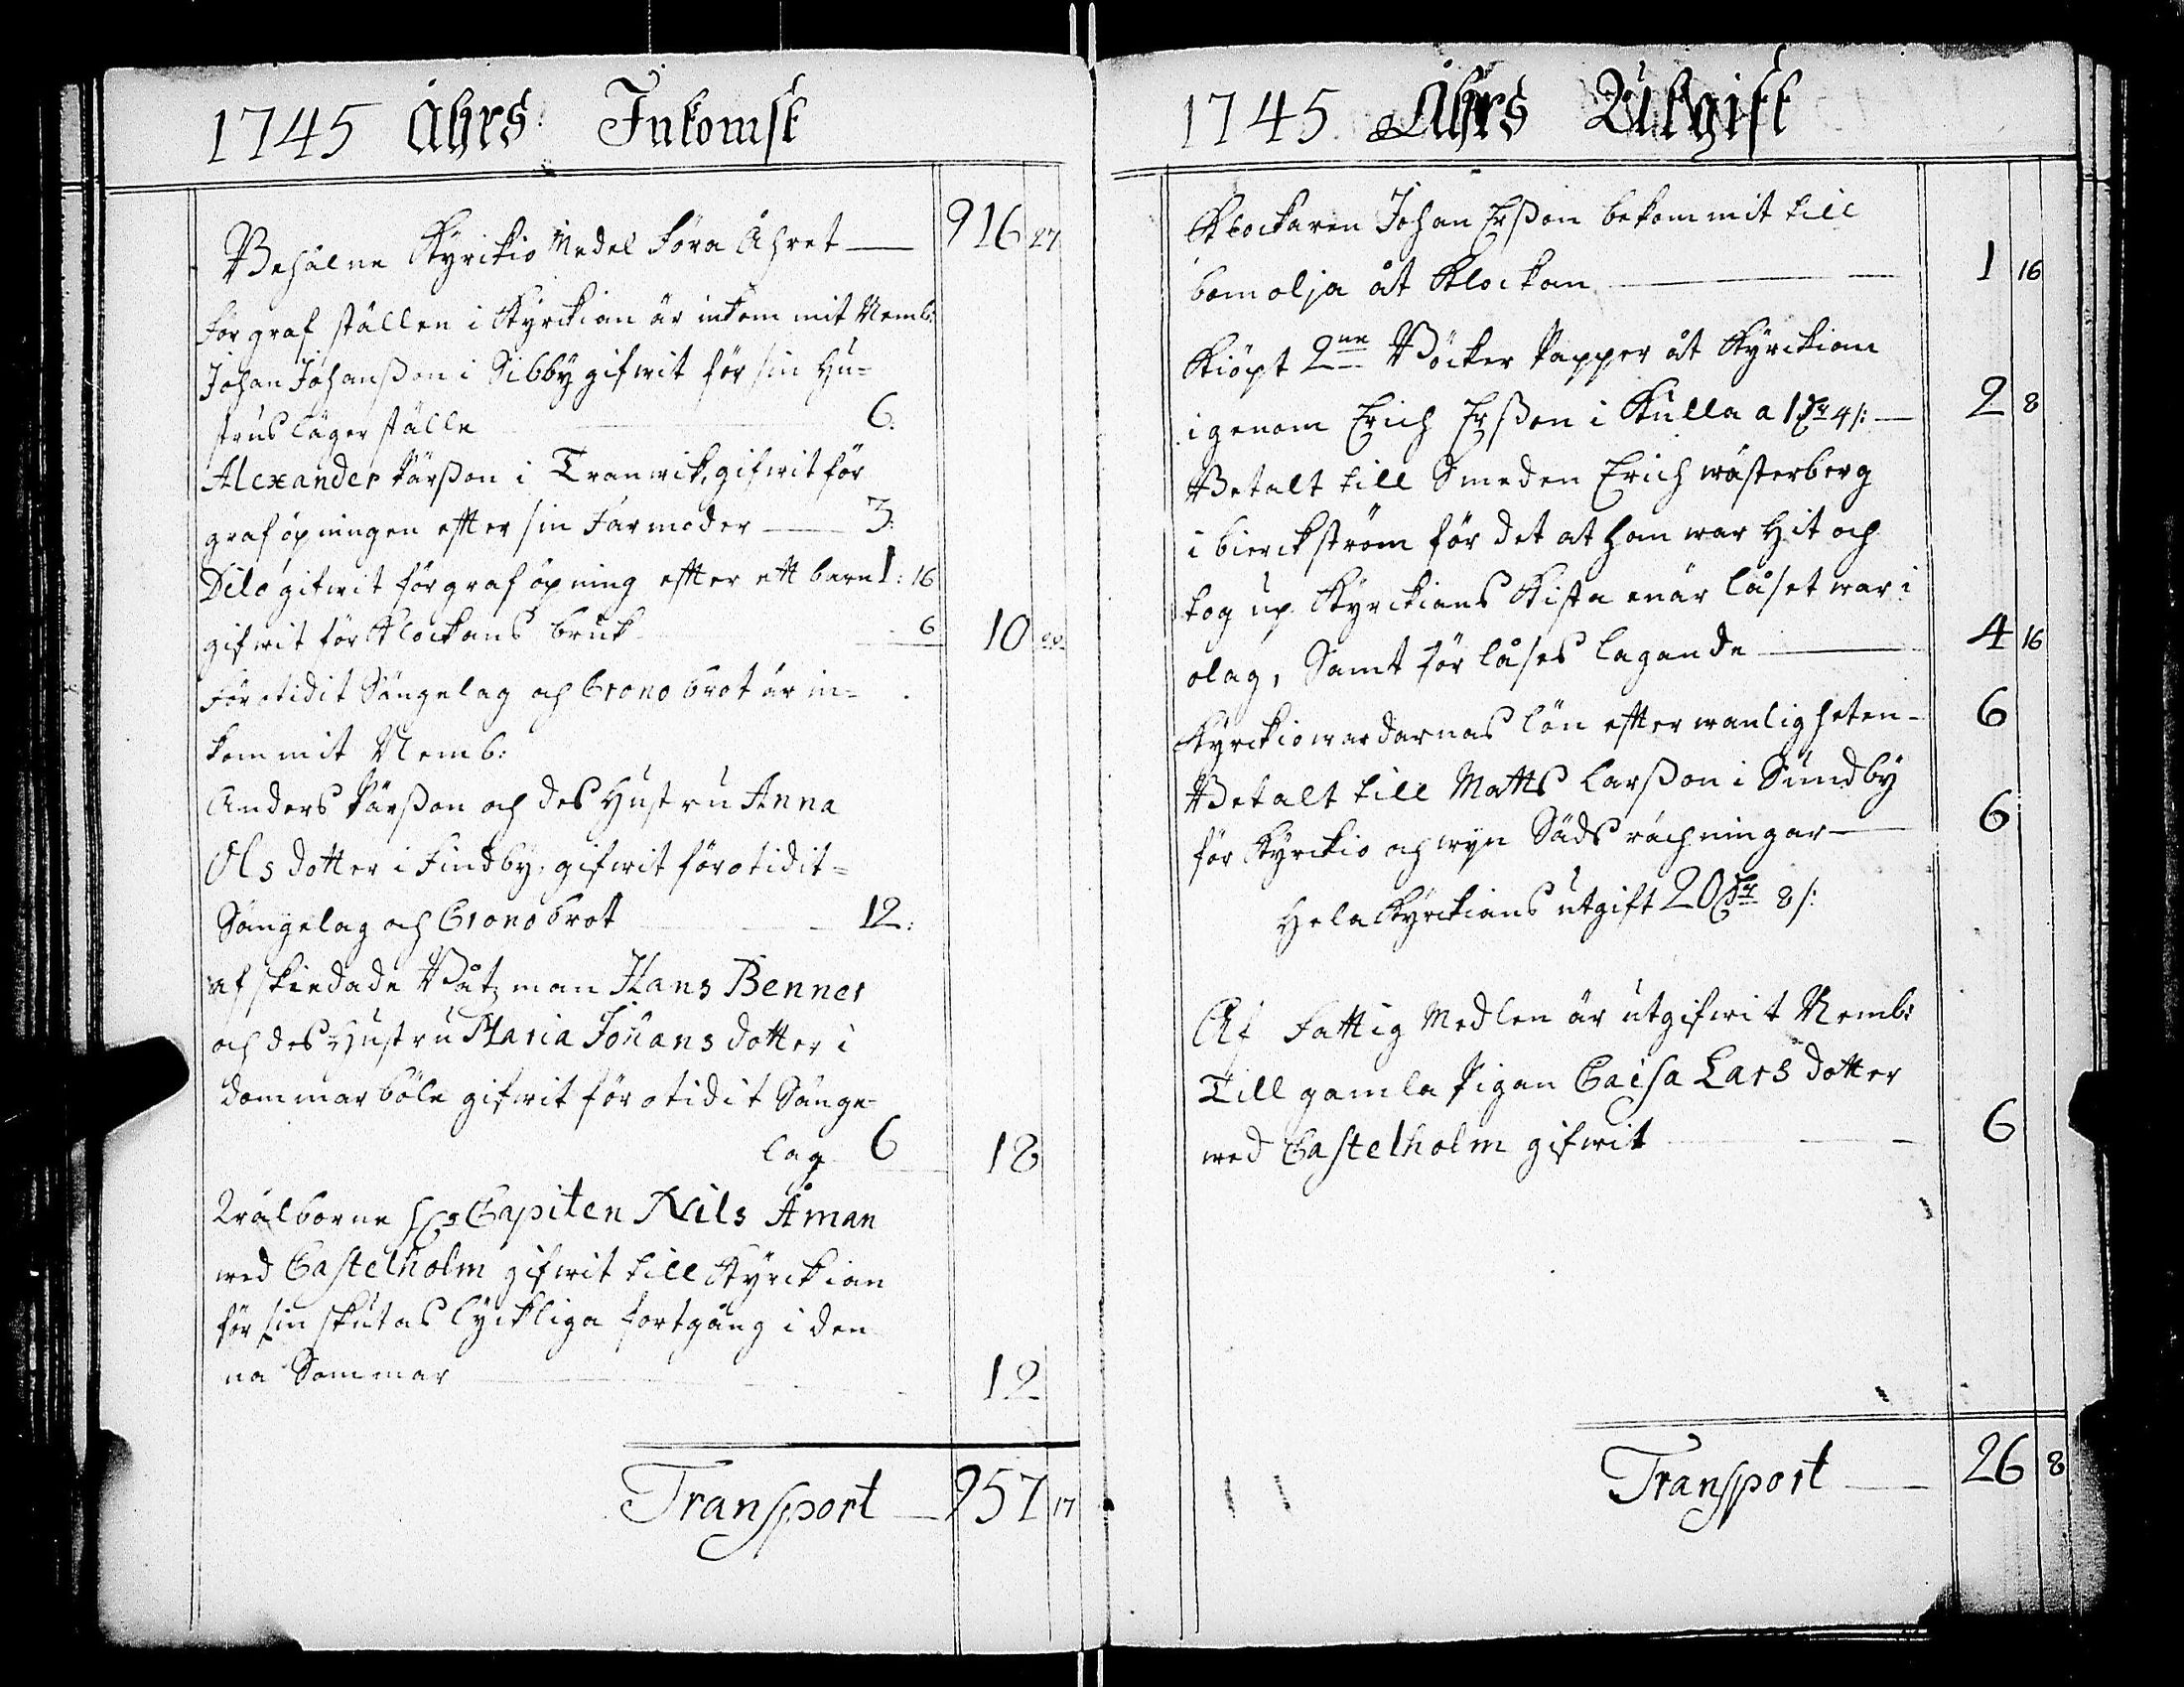 1745 Åhrs Inkomst
Behålne Kyrckio Medel förra Åhret — 916 27
för graf ställen i Kyrckian är inkommit Nemb:
Johan Johanßon i Sibby gifwit för sin Hu-
strus läger ställe 6.
Alexander Pärßon i Tranwik, gifwit för
graf öpningen efter sin Farmoder — 3:
Dito gifwit för graf öpning efter ett barn 1:16
gifwit för Klockans bruk 6 10 22
För otidit Sängelag och Crono brot är in-
kommit Nemb:
Anders Pärßon och des Hustru Anna
Ols dotter i Findby, gifwit för otidit-
Sängelag och Crono brot 12:
afskiedade Båtzman Hans Benner
och des Hustru Maria Johans dotter i
Dommarböle gifwit för otidit Sänge-
lag 6 18
Wälborne H:r Capiten Nils Åman
wed Castelholm gifwit till Kyrckian
för sin skutas lyckliga fortgång i den
na Sommar 12
Transport — 957 17
1745 Åhrs Utgift
Klockaren Johan Erßon bekommit till
bomolja åt Klockan — 1 16
Kiöpt 2ne Böcker Papper åt Kyrckian
igenom Erich Erßon i Kulla a 1 Dr 4/: — 2 8
Betalt till Smeden Erich wästerberg
i bierckström för det at han war hit och
tog up Kyrckians Kista enär låset war i
olag, Samt för låses lagande — 4 16
Kyrckiowardarnas lön efter wanligheten - 6
Betalt till Matts Larßon i Sundby
för Kyrckio och wyn Säds rächningar — 6
Hela Kyrckians utgift 20 Dr 8/:
Af Fattig Medlen är utgifwit Nemb:
Till gamla Pigan Caisa Lars dotter
wed Castelholm gifwit — 6
Transport — 26 8